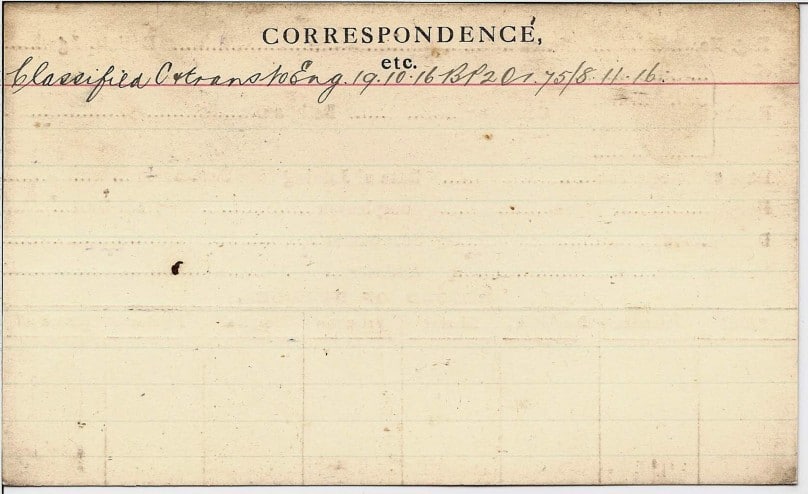 CORRESPONDENCE,
etc.
Classified C & trans to Eng. 19.10.16 BP2 O1. 75/8.11.16.